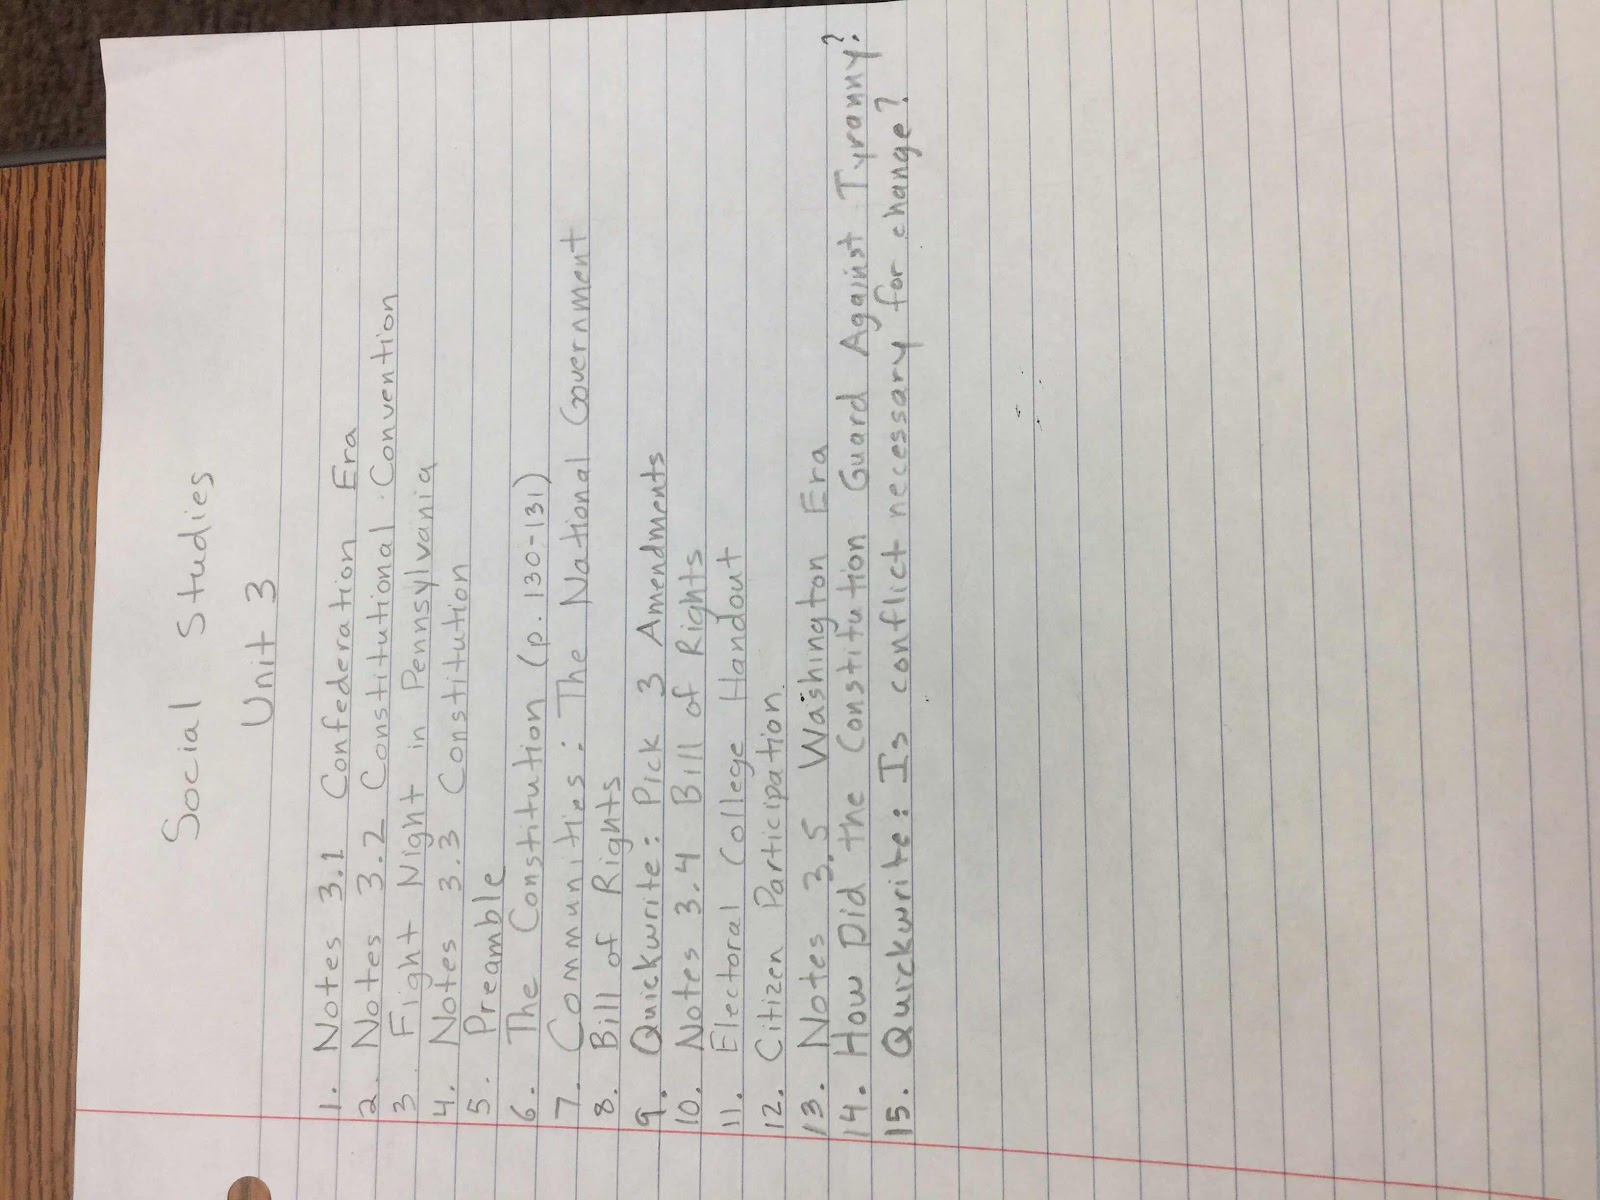 Social Studies
Unit 3
1. Notes 3.1 Confederation Era
2. Notes 3.2 Constitutional Convention
3. Fight Night in Pennsylvania
4. Notes 3.3 Constitution
5. Preamble
6. The Constitution (p. 130-131)
7. Communities: The National Government
8. Bill of Rights
9. Quickwrite: Pick 3 Amendments
10. Notes 3.4 Bill of Rights
11. Electoral College Handout
12. Citizen Participation
13. Notes 3.5 Washington Era
14. How Did the Constitution Guard Against Tyranny?
15. Quickwrite: Is conflict necessary for change?